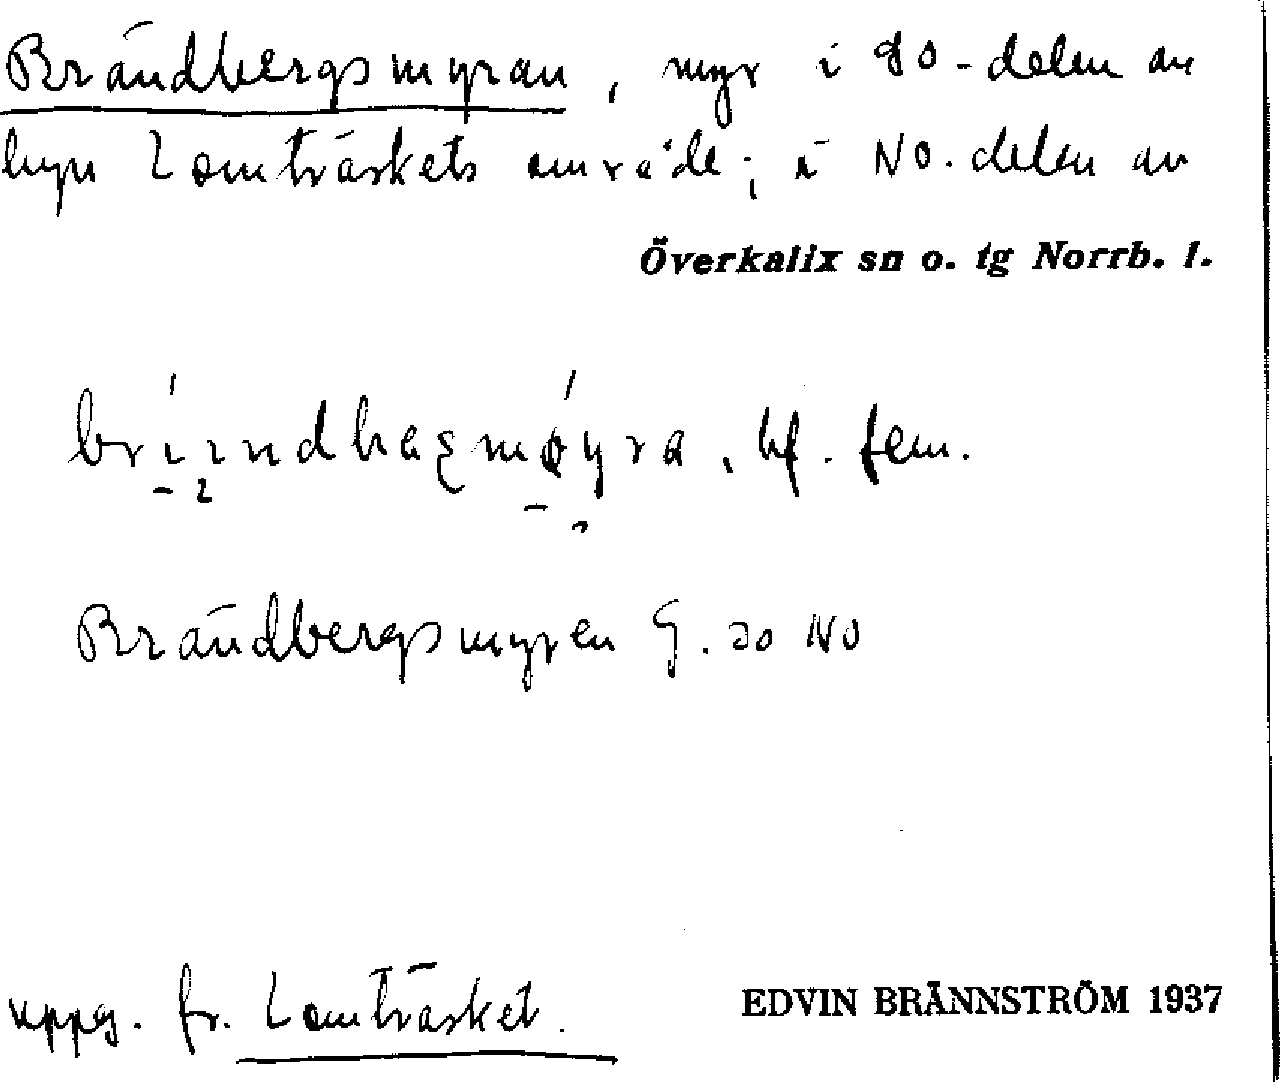 Brändbergsmyran, myr i SO-delen av
byn Lomträskets område; i NO-delen av
Överkalix sn o. tg Norrb. l.
bf. fem.
Brändbergsmyren G. so NO
uppg. fr. Lomträsket.
EDVIN BRÄNNSTRÖM 1937